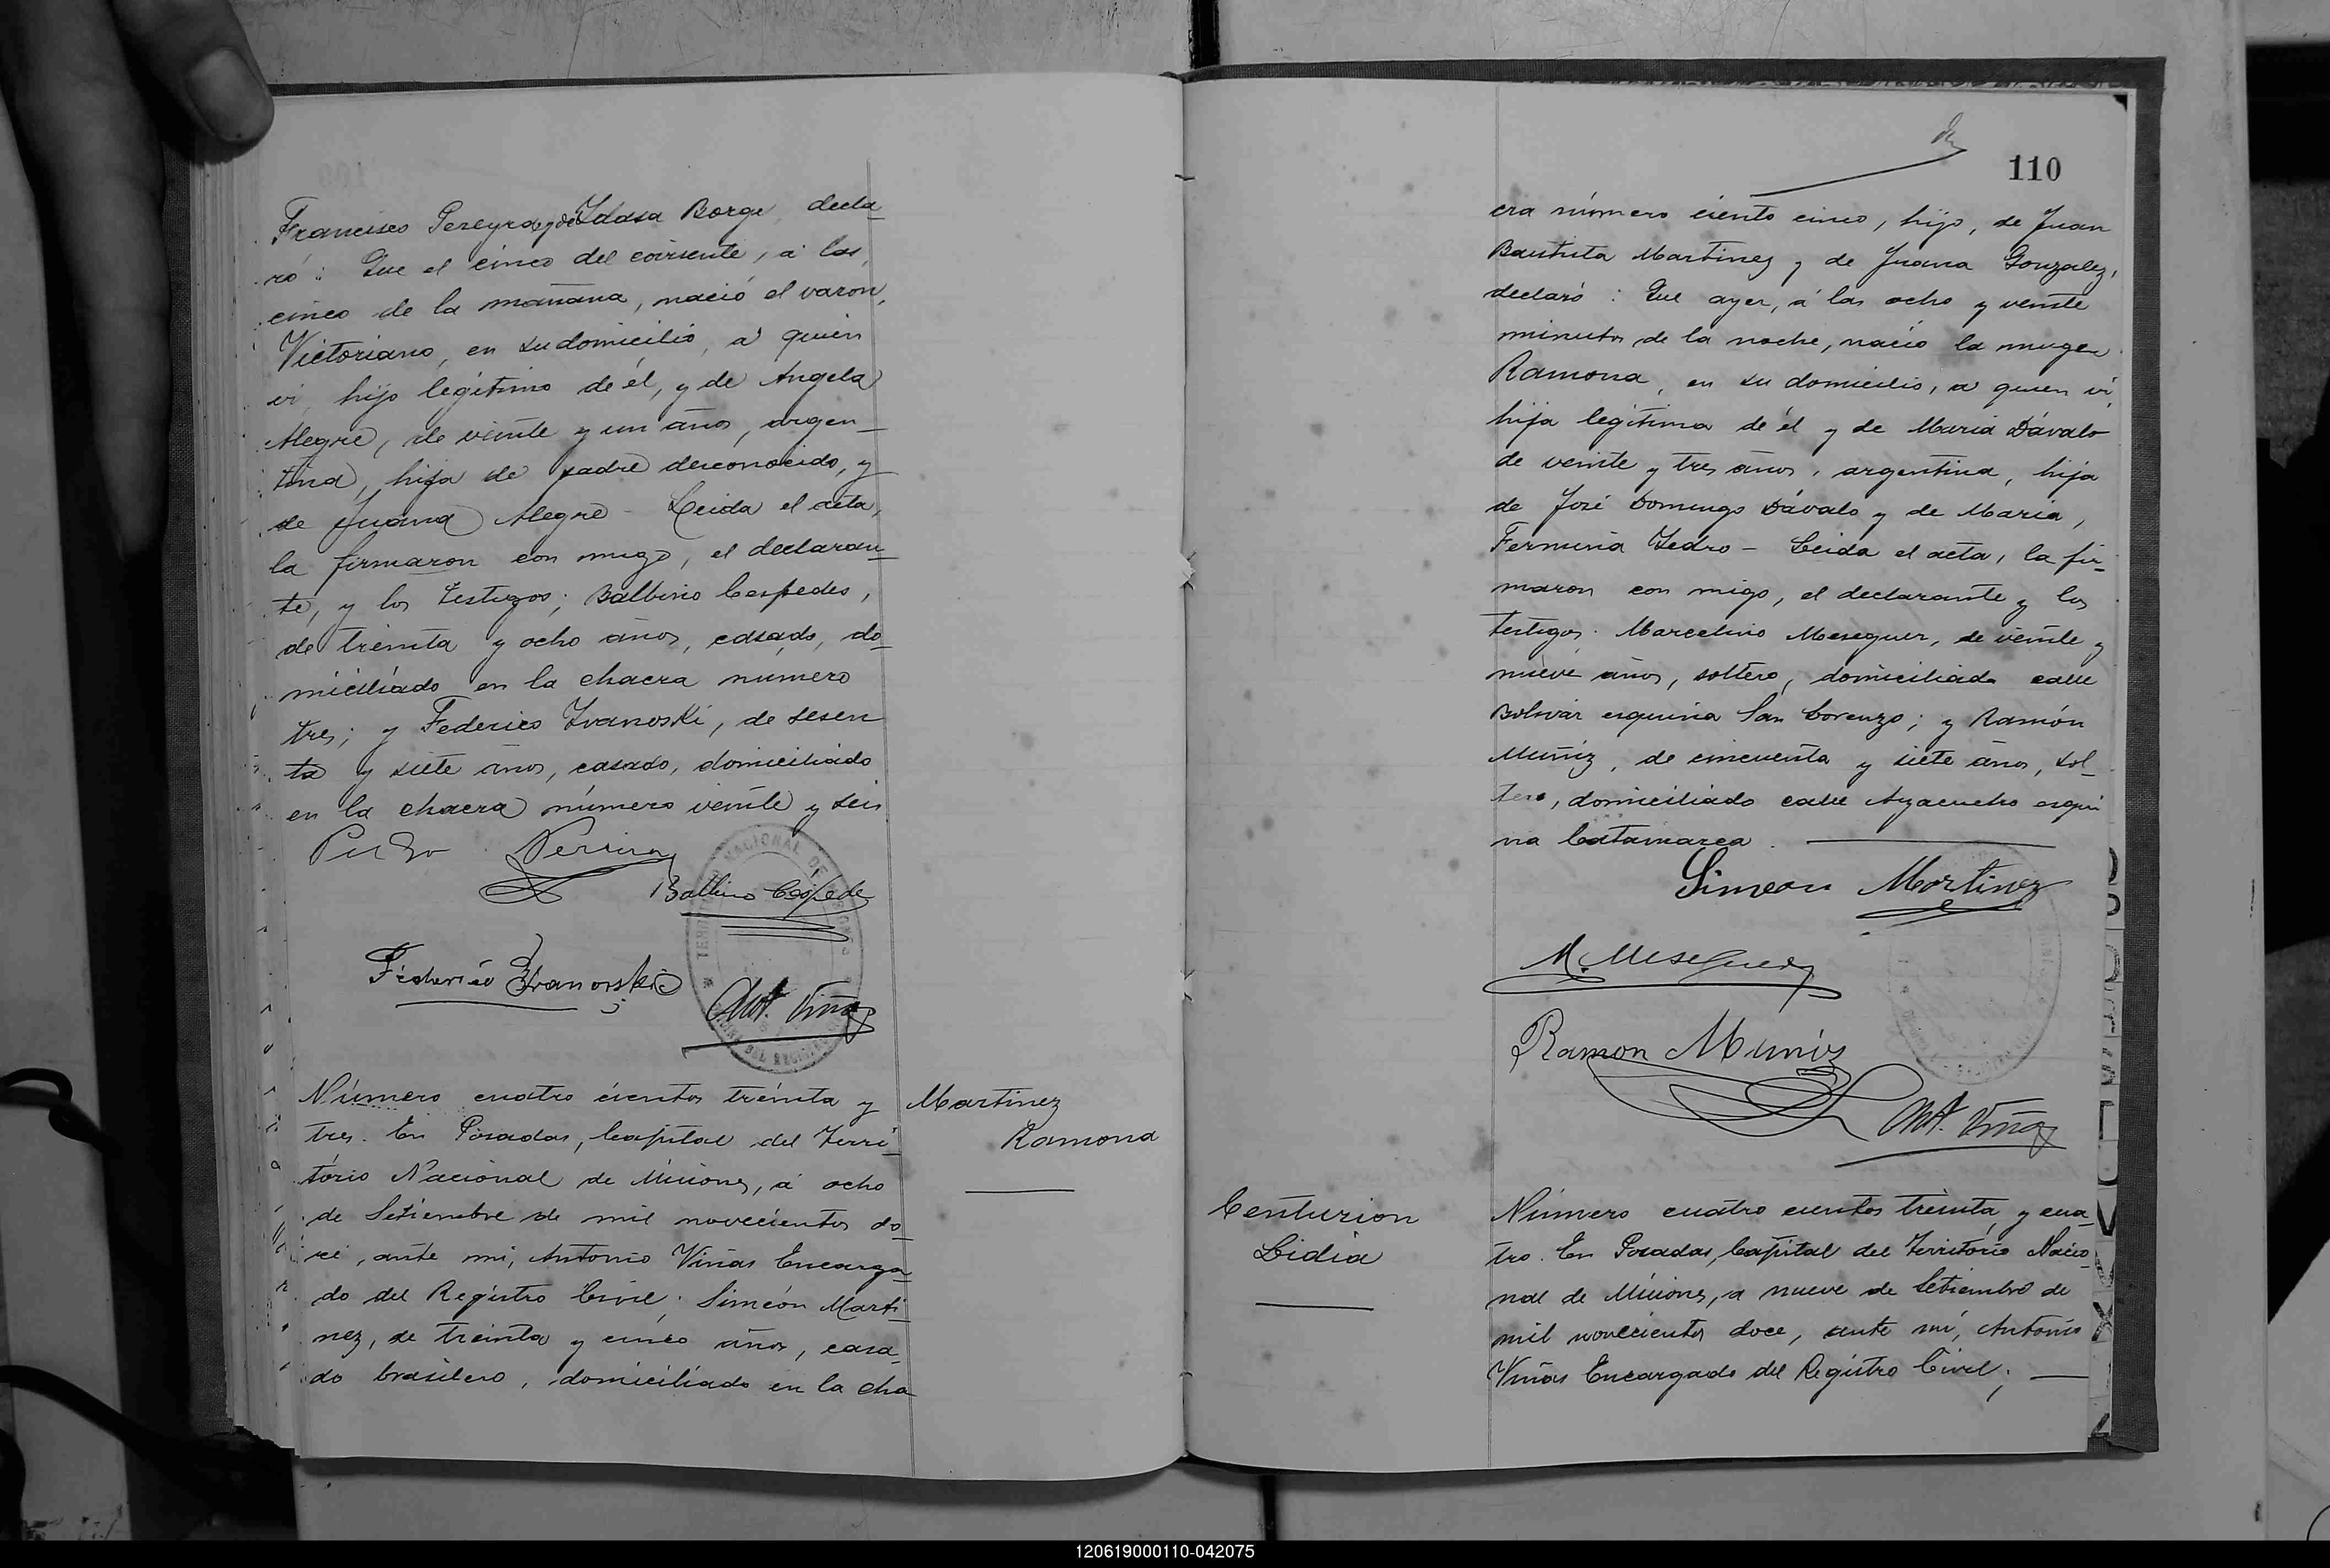 Francisco Pereyra y de Idasa Borge, decla_
ró: Que el cinco del corriente, á las
cinco de la mañana, nació el varon,
Victoriano, en su domicilio, a quien
vi, hijo legítimo de él, y de Angela
Alegre, de veinte y un años, argen_
tina, hija de padre desconocido, y
de Juana Alegre - Leida el acta,
la firmaron con migo, el declaran_
te, y los testigos; Balbino Cespedes,
de treinta y ocho años, casado, do_
miciliado en la chacra número
tres; y Federico Ivanoski, de sesen
ta y siete años, casado, domiciliado
en la chacra número veinte y seis
Pedro Pereira
Balbino Cespede
Federico Ivanoski
Ant. Viñas
Número cuatro cientos treinta y
tres. En Posadas, Capital del Terri_
tório Nacional de Misiones, á ocho
de Setiembre de mil novecientos do_
ce, ante mi, Antonio Viñas Encarga_
do del Registro Civil; Simeón Marti_
nez, de treinta y cinco años, casa_
do brasilero, domiciliado en la cha
Martinez
Ramona
110
cra número ciento cinco, hijo, de Juan
Bautista Martinez y de Juana Gonzalez,
declaró: Que ayer, á las ocho y veinte
minutos de la noche, nació la muger
Ramona, en su domicilio, a quien vi,
hija legítima de él y de María Dávalo
de veinte y tres años, argentina, hija
de José Domingo Dávalo y de Maria,
Fermina Ledro - Leida el acta, la fir_
maron con migo, el declarante y los
testigos: Marcelino Meseguer, de veinte y
nueve años, soltero, domiciliado calle
Bolivar esquina San Lorenzo; y Ramón
Muñiz, de cincuenta y siete años, sol_
tero, domiciliado calle Ayacucho esqui
na Catamarca.
Simeon Martinez
M. Meseguer
Ramon Muniz
Ant. Viñas
Centurion
Lidia
Número cuatro cientos treinta y cua_
tro. En Posadas, Capital del Territorio Nacio_
nal de Misiones, a nueve de Setiembre de
mil novecientos doce, ante mí, Antonio
Viñas Encargado del Registro Civil;
120619000110-042075